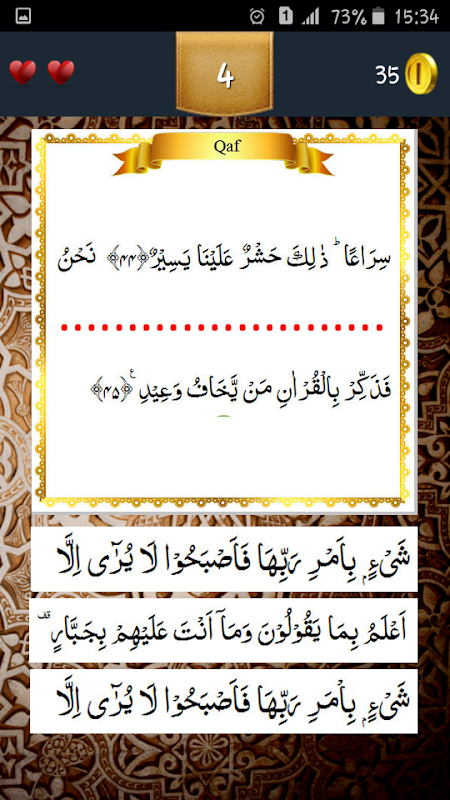 73% 15:34
4
35
Qaf
سِرَاعًا ؕ ذٰلِكَ حَشْرٌ عَلَيْنَا يَسِيْرٌ ﴿۴۴﴾ نَحْنُ
فَذَكِّرْ بِالْقُرْاٰنِ مَنْ يَّخَافُ وَعِيْدِ ﴿۴۵﴾ ع
شَیْءٍۭ بِاَمْرِ رَبِّهَا فَاَصْبَحُوْا لَا يُرٰٓى اِلَّا
اَعْلَمُ بِمَا يَقُوْلُوْنَ وَمَاۤ اَنْتَ عَلَيْهِمْ بِجَبَّارٍ قف
شَیْءٍۭ بِاْمَرِ رَبِّهَا فَاَصْبَحُوْا لَا يُرٰٓى اِلَّا